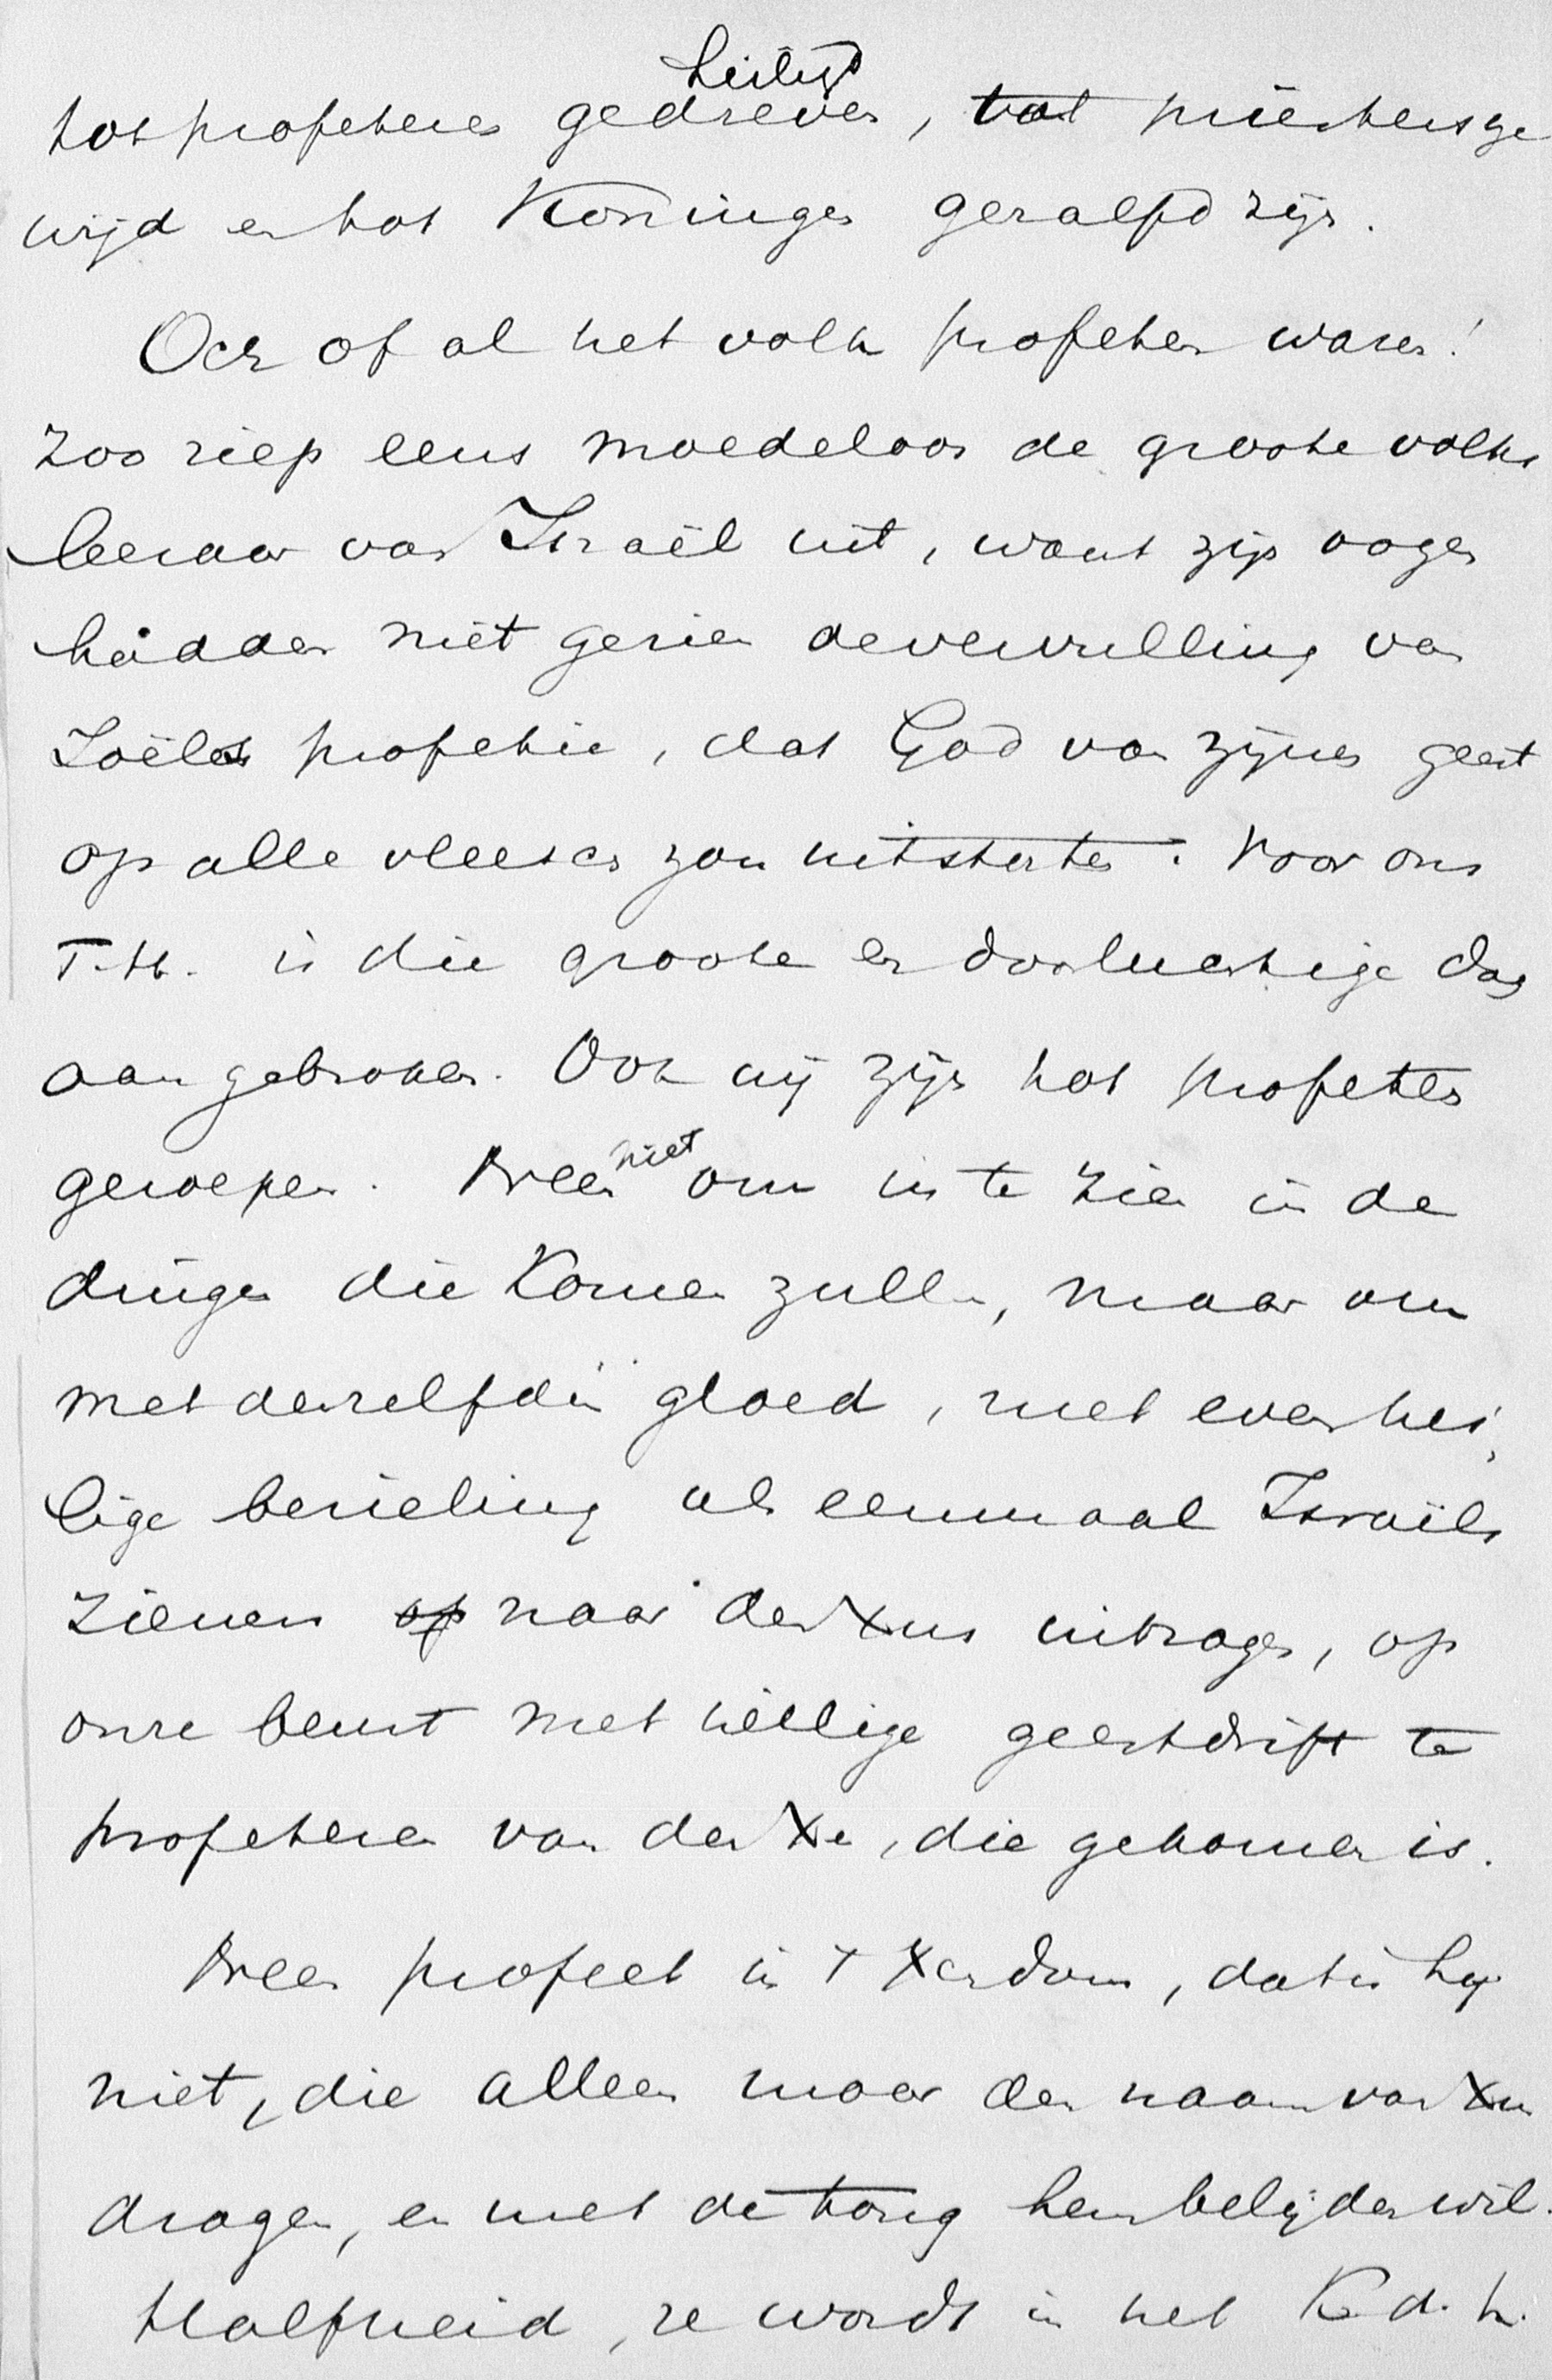 heilig
tot profeteren gedreven, tot priesters ge
wijd en tot Koningen gezalfd zijn.
Och of al het volk profeten waren!
Zoo riep eens moedeloos de groote volks
leeraar van Israël uit, want zijn oogen
hadden niet gezien de vervulling van
Joëls profetie, dat God van zijnen geest
op alle vleesch zou uitstorten. Voor ons
T.H. is die groote en doorluchtige dag
aangebroken. Ook wij zijn tot profeten
geroepen. Neen niet om in te zien in de
dingen die Komen zullen, maar om
met denzelfden gloed, met even hei
lige bezieling als eenmaal Israëls
Zieners op naar den Xus uitzagen, op
onze beurt met heilige geestdrift te
profeteren van den Xe, die gekomen is.
Neen profeet in 't Xendom, dat is hij
niet, die alleen maar den naam van Xen
dragen, en met de tong hem belijden wil.
Halfheid, ze wordt in het K. d. h.